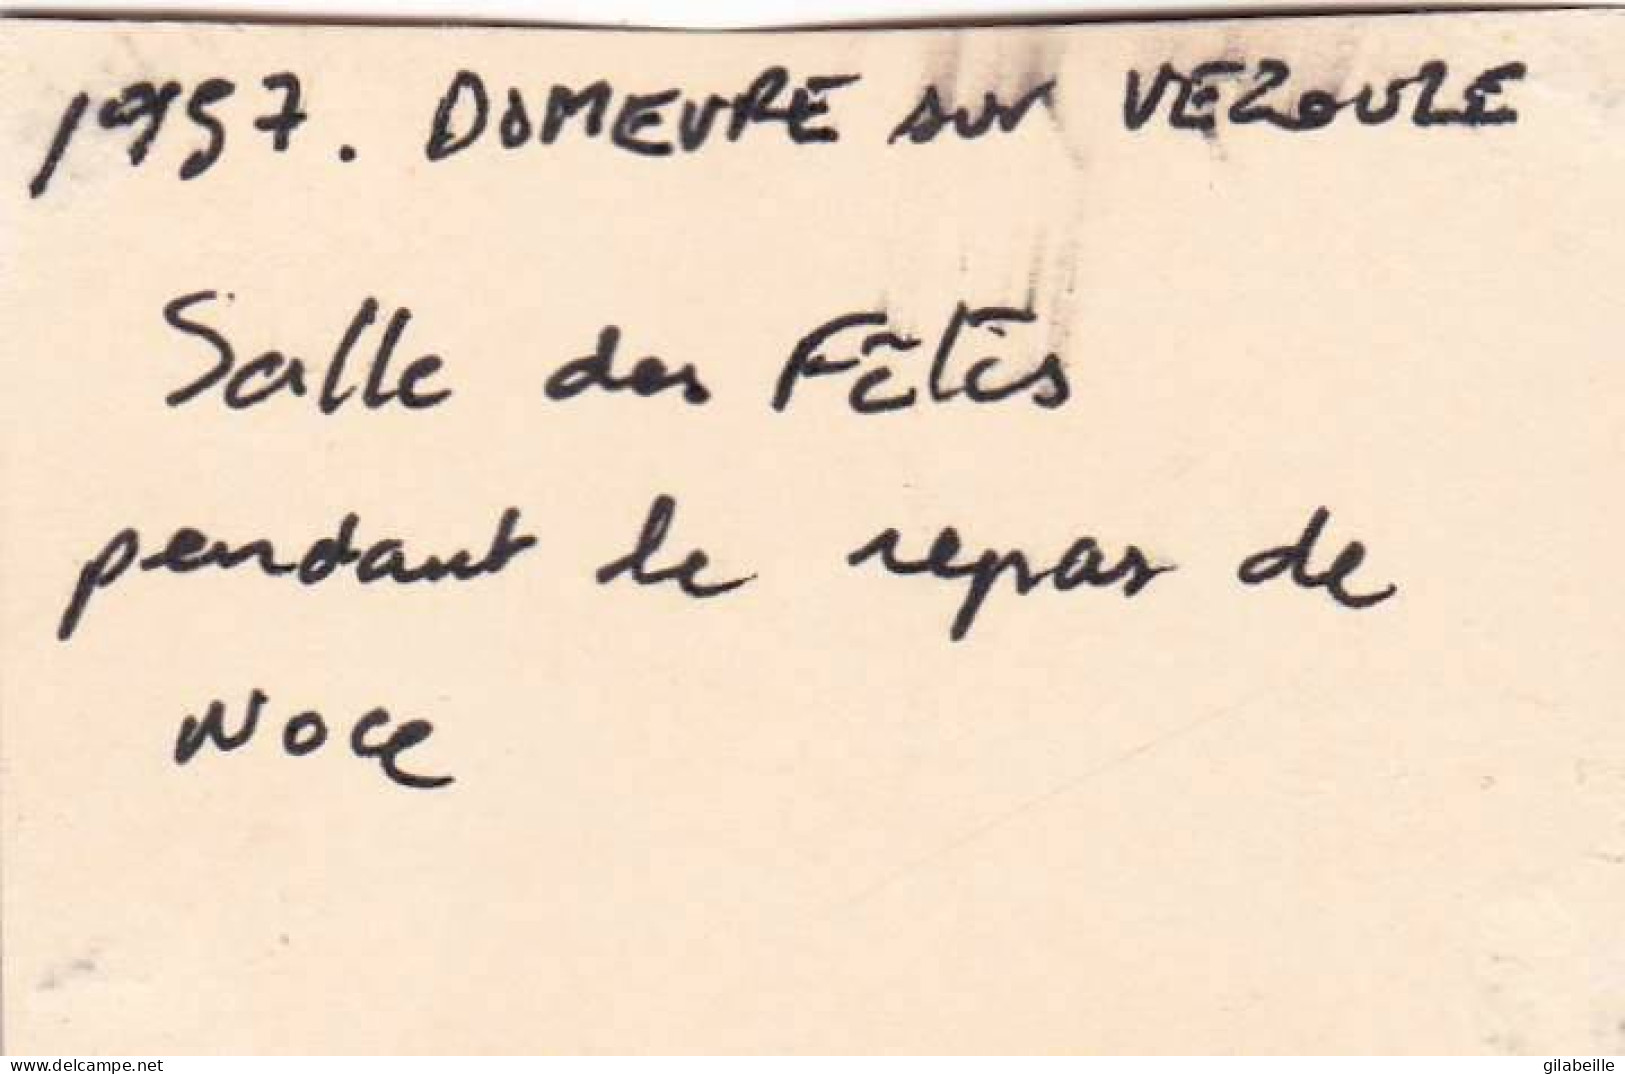 1957. DOMEVRE sur VEZOUZE
Salle des Fêtes
pendant le repas de
Noce
delcampe.net
gilabeille